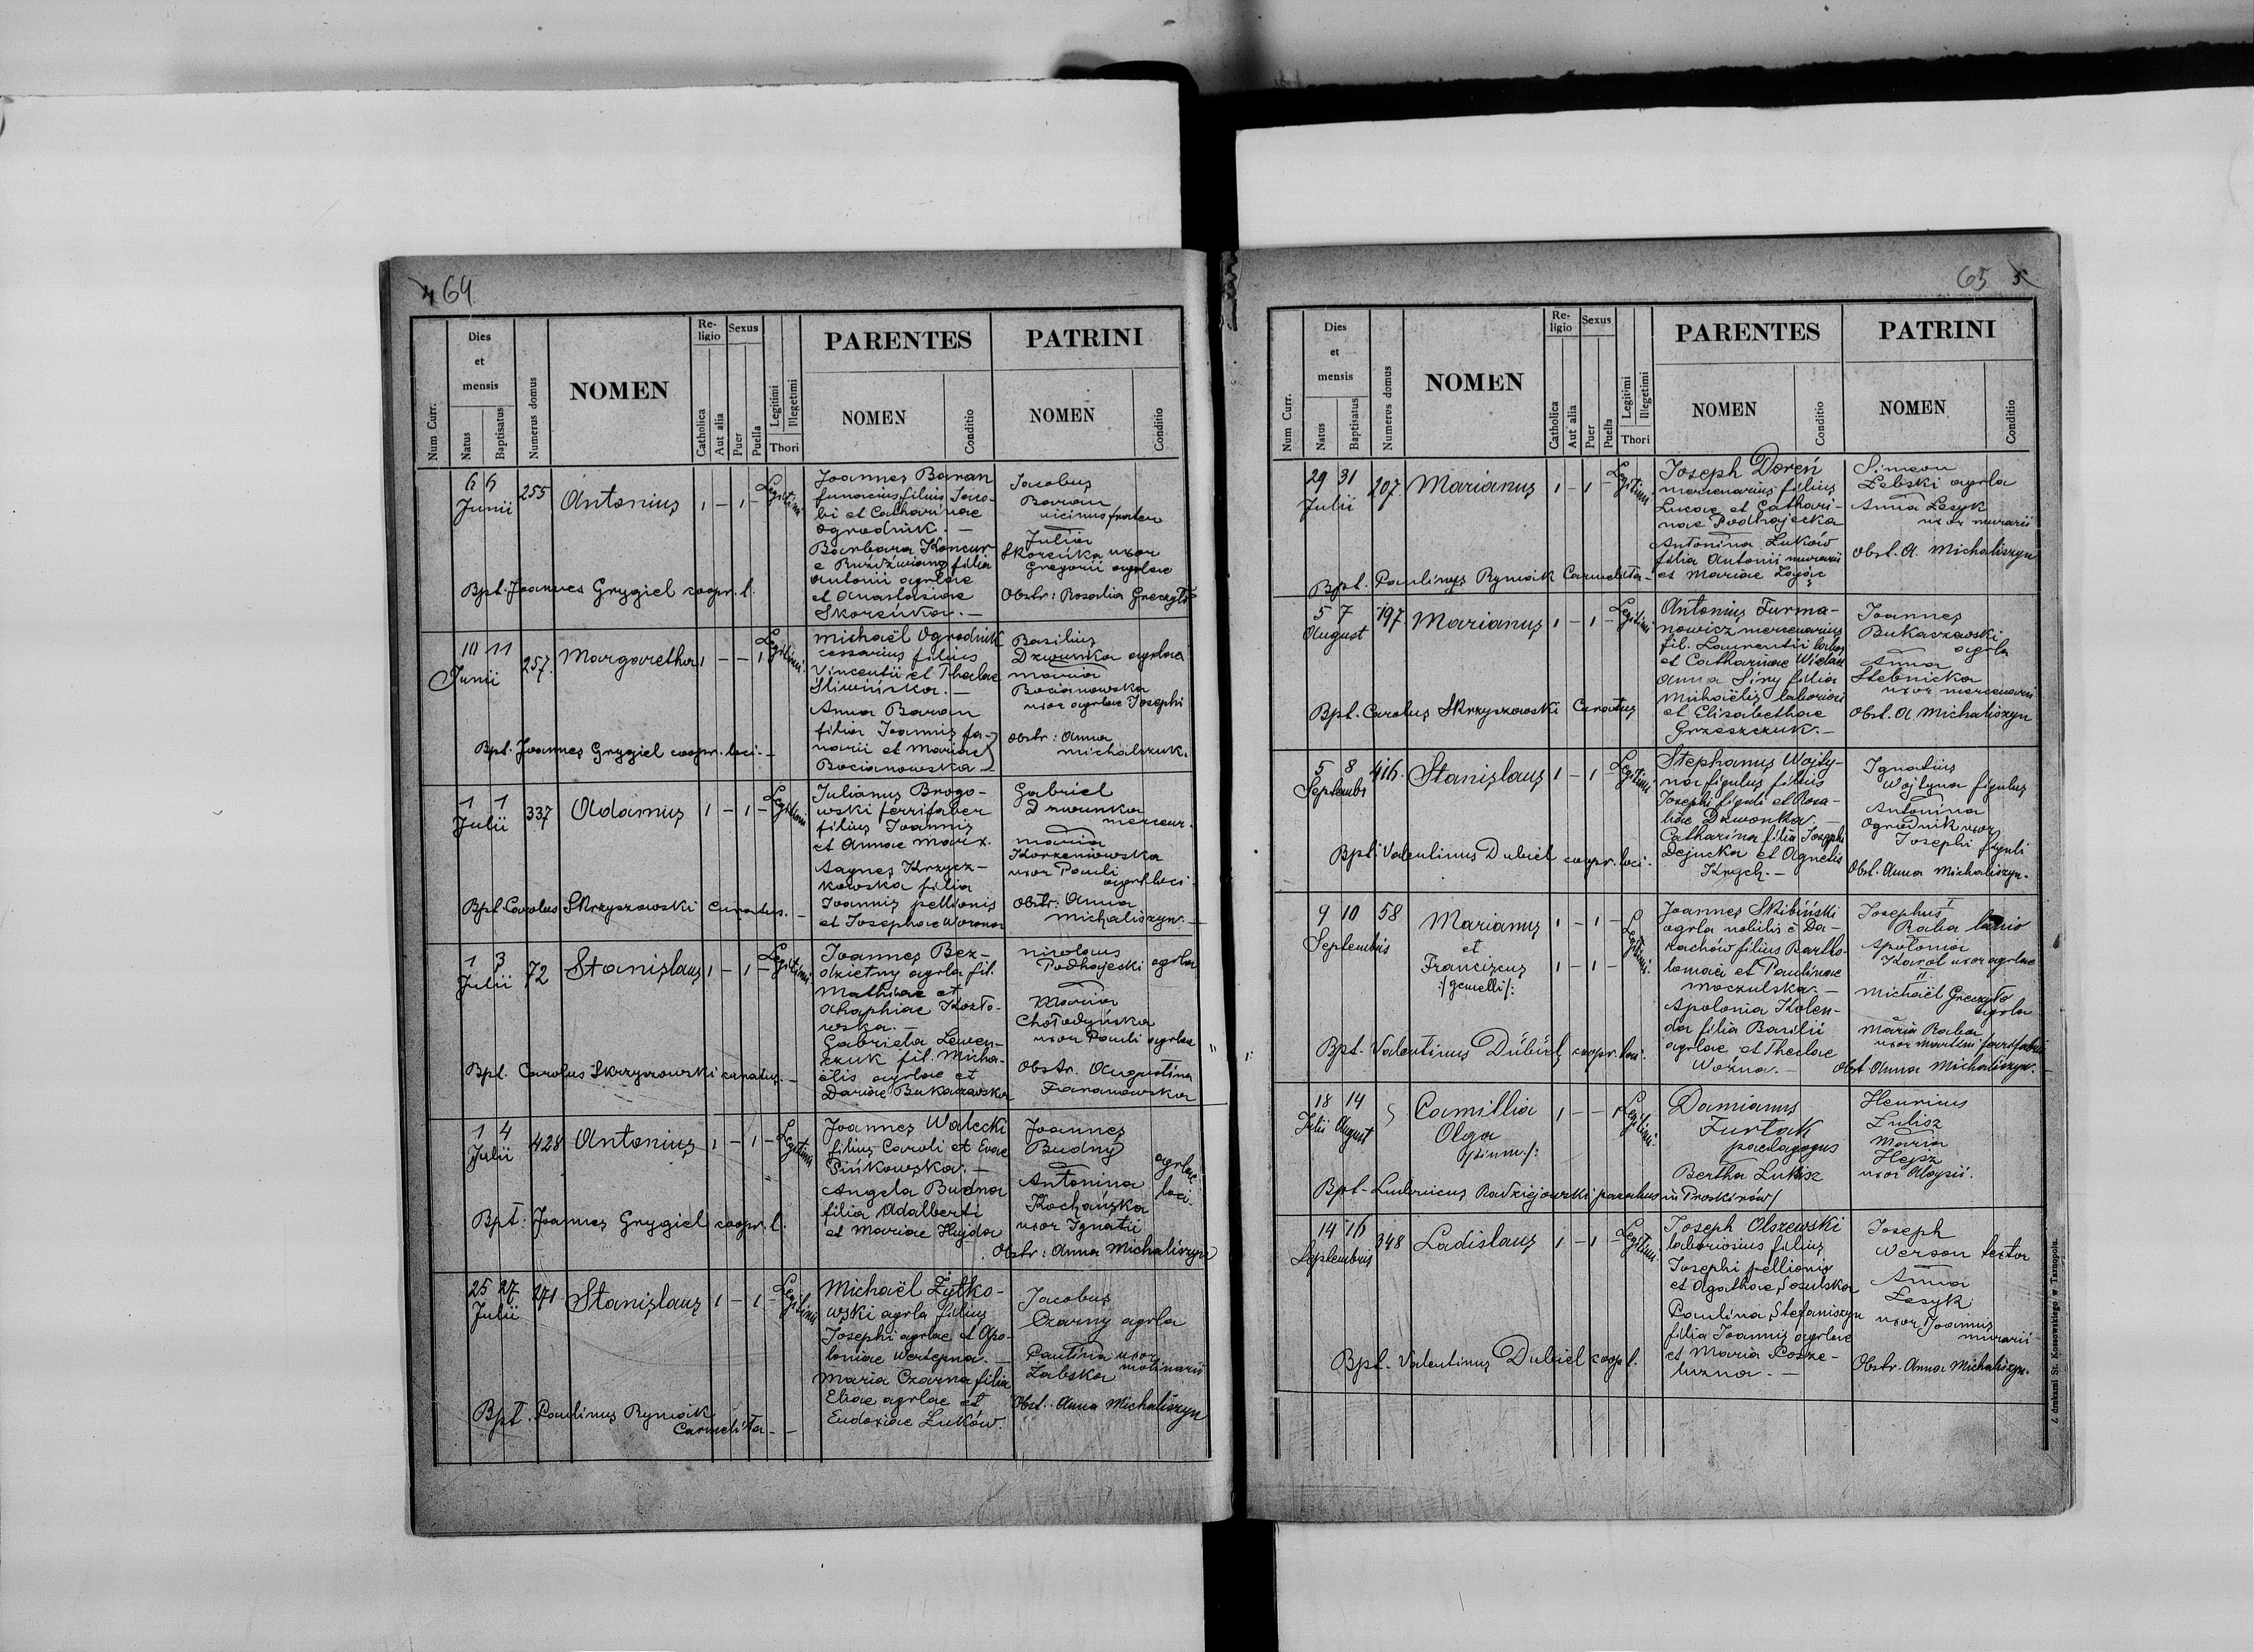 4 64
Num Curr.
Dies et mensis
Natus
Baptisatus
Numerus domus
NOMEN
Re-
ligio
Catholica
Aut alia
Sexus
Puer
Puella
Legitimi
Illegetimi
Thori
PARENTES
NOMEN
Conditio
PATRINI
NOMEN
Conditio
6 6
Junii
255
Antonius
1 – 1 –
Legitimi
Joannes Baran
filius Jaco-
bi et Catharinae
Ogrodnik. –
Barbara Koncur
filia
Antonii agrlae
et Anastasiae
Skoreńka. –
Jacobus
Baran
vicinus frater
Julia
Skoreńka uxor
Gregorii agrlae
Obstr: Rosalia Greczyło
Bpt. Joannes Grygiel coopr. l.
10 11
Junii
257.
Margaretha
1 – – 1
Legitimi.
Michaël Ogrodnik
cessarius filius
Vincentii et Theclae
Śliwińska. –
Anna Baran
filia Joannis fa-
narii et Mariae
Bocianowska –
Basilius
Dzwunka agrlae
Maria
Bocianowska
uxor agrlae Josephi
Obstr: Anna
Michalszuk.
Bpt. Joannes Grygiel coopr. loci. –
1 1
Julii
337
Adamus
1 – 1 –
Legitimi
Julianus Brogo-
wski ferrifaber
filius Joannis
et Annae Marx.
Agnes Krzycz-
kowska filia
Joannis pellionis
et Josephae Worona
Gabriel
Dzwunka
mercenr.
Maria
Korzeniowska
uxor Pauli
agrl loci
Obstr: Anna
Michaliszyn. –
Bpt. Carolus Skrzyszowski curatus. –
1 3
Julii
72
Stanislaus
1 – 1 –
Legitimi
Joannes Bez-
dzietny agrla fil.
Mathiae et
Ahaphiae Kozło-
wska. –
Gabriela Lewen-
czuk fil. Micha-
ëlis agrlae et
Dariae Bukaczowska
Nicolaus
Podhajecki agrla
Maria
Chołodyńska
uxor Pauli agrlae
Obstr. Augustina
Faranowska
Bpt. Carolus Skrzyszowski curatus. –
1 4
Julii
428
Antonius
1 – 1 –
Legitimi
Joannes Walecki
filius Caroli et Evae
Pińkowska. –
Angela Budna
filia Adalberti
et Mariae Hujda
Joannes
Budny
Antonina
Kochańska
uxor Ignatii
agrlae
loci.
Obstr: Anna Michaliszyn
Bpt: Joannes Grygiel coopr. l.
25 27
Julii
271
Stanislaus
1 – 1 –
Legitimi
Michaël Żytko-
wski agrla filius
Josephi agrlae et Apo-
loniae Wertepna. –
Maria Czarna filia
Eliae agrlae et
Eudoxiae Łuków.
Jacobus
Czarny agrla
Paulina uxor
Żabska molinarii
Obst. Anna Michaliszyn
Bpt. Paulinus Rymaik
Carmelita –
65 5
Num Curr.
Dies et mensis
Natus
Baptisatus
Numerus domus
NOMEN
Re-
ligio
Catholica
Aut alia
Sexus
Puer
Puella
Legitimi
Illegetimi
Thori
PARENTES
NOMEN
Conditio
PATRINI
NOMEN
Conditio
29 31
Julii
207.
Marianus
1 – 1 –
Legitimi
Joseph Doreń
mercenarius filius
Lucae et Cathari-
nae Podhajecka
Antonina Łuków
filia Antonii murarii
et Mariae Zając
Simeon
Łebski agrla
Anna Łesyk
uxor murarii
Obst. A. Michaliszyn
Bpt. Paulinus Rymaik Carmelita –
5 7
August
197
Marianus
1 – 1 –
Legitimi
Antonius Furma-
nowicz mercenarius
fil. Laurentii
et Catharinae
Anna Siny filia
Michaëlis laboriosi
et Elisabethae
Grzeszczuk. –
Joannes
Bukaczowski
agrla
Anna
Stebnicka
uxor mercenarii
Obst. A. Michaliszyn
Bpt. Carolus Skrzyszowski Curatus
5 8
Septembr
416.
Stanislaus
1 – 1 –
Legitimi
Stephanus Wojty-
na figulus filius
Josephi figuli et Rosa-
liae Dzwonka. –
Catharina filia Josephi
Dejneka et Agnetis
Krych. –
Ignatius
Wojtyna figulus
Antonina
Ogrodnik uxor
Josephi figuli
Obst. Anna Michaliszyn.
Bpt. Valentinus Dubiel coopr. loci.
9 10
Septembris
58
Marianus
et
Franciscus
:/gemelli/:
1 – 1 –
1 – 1 –
Legitimi.
Joannes Skibiński
agrla nobilis e Da-
rachów filius Bartho-
lomaei et Paulinae
Moczulska. –
Apolonia Kolen-
da filia Basilii
agrlae et Theclae
Woźna. –
Josephus I
Raba lanio
Apolonia
Karol uxor agrlae
II.
Michaël Greczyło
agrla
Maria Raba
uxor Martini ferrifabri
Obst Anna Michaliszyn.
Bpt. Valentinus Dubiel coopr. loci.
18 14
Julii August
Camillia
Olga
1 – – 1
Legitimi.
Damianus
Zurtak
paedagogus
Bertha Lukisz
Henricus
Lulisz
Maria
Hejsz
uxor Aloysii.
Bpt. Ludovicus Radziejowski parochus in Proskirów/
14 16
Septembris
348
Ladislaus
1 – 1 –
Legitimi
Joseph Olszewski
laboriosius filius
Josephi pellionis
et Agathae Soszulska
Paulina Stefaniszyn
filia Joannis agrlae
et Maria Posze-
luzna. –
Joseph
Werson textor
Anna
Łesyk
uxor Joannis
murarii
Obstr. Anna Michaliszyn.
Bpt. Valentinus Dubiel coop l.
Z drukarni St. Kossowskiego w Tarnopolu.